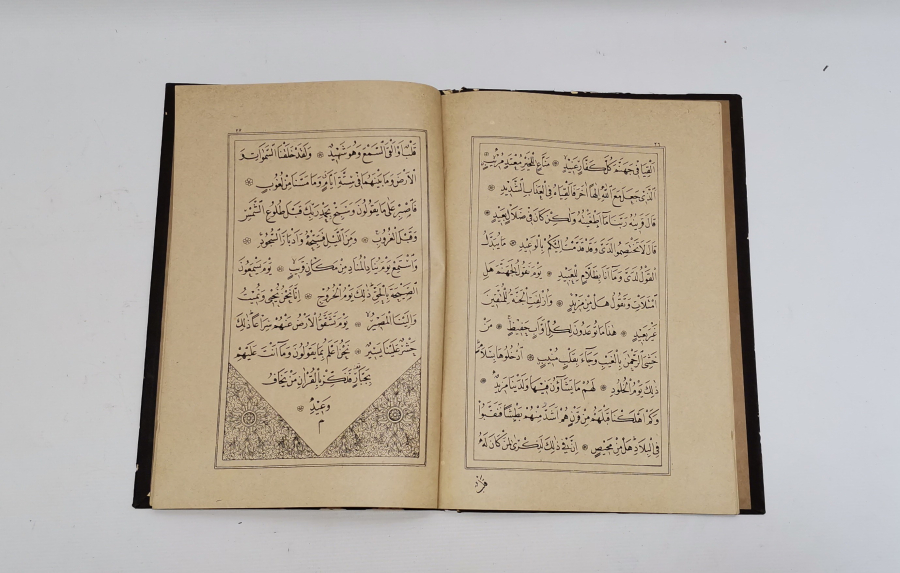 اَلْقِيَا فِي جَهَنَّمَ كُلَّ كَفَّارٍ عَنِيدٍ ۞ مَنَّاعٍ لِلْخَيْرِ مُعْتَدٍ مُرِيبٍ
اَلَّذِي جَعَلَ مَعَ اللّٰهِ اِلٰهًا اٰخَرَ فَاَلْقِيَاهُ فِي الْعَذَابِ الشَّدِيدِ ۞
قَالَ قَرِينُهُ رَبَّنَا مَا اَطْغَيْتُهُ وَلٰكِنْ كَانَ فِي ضَلَالٍ بَعِيدٍ ۞
قَالَ لَا تَخْتَصِمُوا لَدَيَّ وَقَدْ قَدَّمْتُ اِلَيْكُمْ بِالْوَعِيدِ ۞ مَا يُبَدَّلُ
الْقَوْلُ لَدَيَّ وَمَا اَنَا بِظَلَّامٍ لِلْعَبِيدِ ۞ يَوْمَ نَقُولُ لِجَهَنَّمَ هَلِ
امْتَلَاْتِ وَتَقُولُ هَلْ مِنْ مَزِيدٍ ۞ وَاُزْلِفَتِ الْجَنَّةُ لِلْمُتَّقِينَ
غَيْرَ بَعِيدٍ ۞ هٰذَا مَا تُوعَدُونَ لِكُلِّ اَوَّابٍ حَفِيظٍ ۞ مَنْ
خَشِيَ الرَّحْمٰنَ بِالْغَيْبِ وَجَاءَ بِقَلْبٍ مُنِيبٍ ۞ اُدْخُلُوهَا بِسَلَامٍ
ذٰلِكَ يَوْمُ الْخُلُودِ ۞ لَهُمْ مَا يَشَاؤُنَ فِيهَا وَلَدَيْنَا مَزِيدٌ ۞
وَكَمْ اَهْلَكْنَا قَبْلَهُمْ مِنْ قَرْنٍ هُمْ اَشَدُّ مِنْهُمْ بَطْشًا فَنَقَّبُوا
فِي الْبِلَادِ هَلْ مِنْ مَحِيصٍ ۞ اِنَّ فِي ذٰلِكَ لَذِكْرٰى لِمَنْ كَانَ لَهُ
قَلْبٌ اَوْ اَلْقَى السَّمْعَ وَهُوَ شَهِيدٌ ۞ وَلَقَدْ خَلَقْنَا السَّمٰوَاتِ وَ
الْاَرْضَ وَمَا بَيْنَهُمَا فِي سِتَّةِ اَيَّامٍ وَمَا مَسَّنَا مِنْ لُغُوبٍ ۞
فَاصْبِرْ عَلٰى مَا يَقُولُونَ وَسَبِّحْ بِحَمْدِ رَبِّكَ قَبْلَ طُلُوعِ الشَّمْسِ
وَقَبْلَ الْغُرُوبِ ۞ وَمِنَ اللَّيْلِ فَسَبِّحْهُ وَاَدْبَارَ السُّجُودِ ۞
وَاسْتَمِعْ يَوْمَ يُنَادِ الْمُنَادِ مِنْ مَكَانٍ قَرِيبٍ ۞ يَوْمَ يَسْمَعُونَ
الصَّيْحَةَ بِالْحَقِّ ذٰلِكَ يَوْمُ الْخُرُوجِ ۞ اِنَّا نَحْنُ نُحْيِي وَنُمِيتُ
وَاِلَيْنَا الْمَصِيرُ ۞ يَوْمَ تَشَقَّقُ الْاَرْضُ عَنْهُمْ سِرَاعًا ذٰلِكَ
حَشْرٌ عَلَيْنَا يَسِيرٌ ۞ نَحْنُ اَعْلَمُ بِمَا يَقُولُونَ وَمَا اَنْتَ عَلَيْهِمْ
بِجَبَّارٍ فَذَكِّرْ بِالْقُرْاٰنِ مَنْ يَخَافُ
وَعِيدِ ۞
م